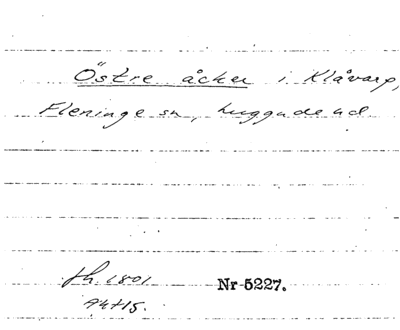 Östre åcker i Klåvarp,
Fleninge sn, huggude ud
fh. 1801
Nr 5227.